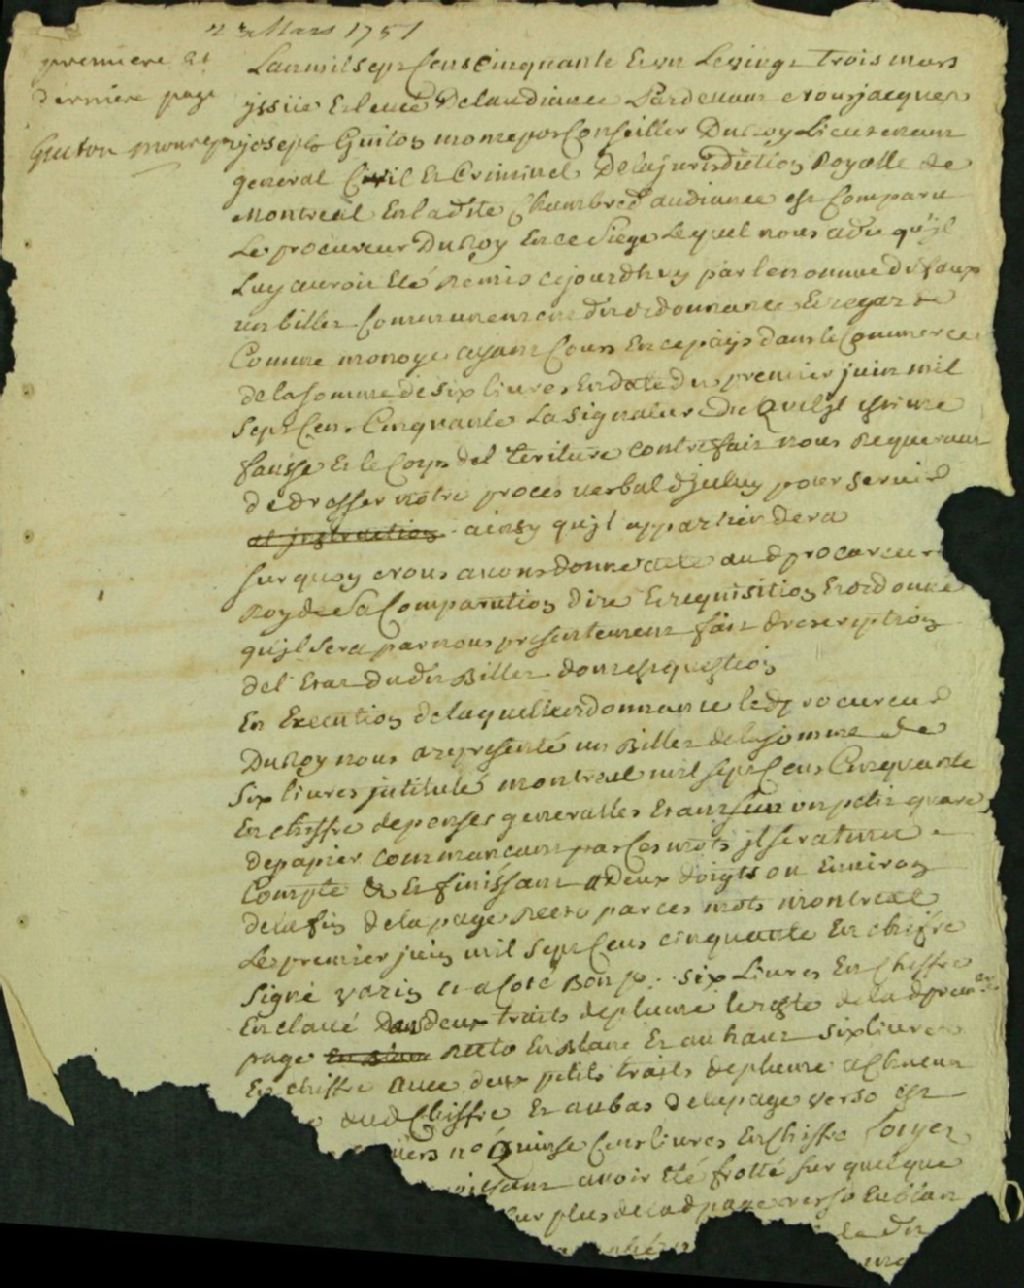 23 Mars 1751
premiere et
derniere page
Guiton monrepos
Lan mil sept Cens Cinquante Et un Le vingt trois mars
jssüe Et leveé De laudiance Pardevant Nous jacques
joseph Guiton monrepos Conseiller Du Roy Lieutenant
general Civil Et Criminel De la jurisdiction Royalle de
Montreal En ladite Chambre daudiance est Comparu
Le procureur Du Roy En ce Siege Lequel nous a dit qu'jl
Luy auroit Eté Remis cejourdhuy par le nommé
un billet Communement dit ordonnance Et regardé
Comme monoye ayant Cours En ce païs dans le Commerce
de la somme de six livres En date du premier juin mil
Sept Cens Cinquante La Signature Duquel jl estime
fausse Et le Corps del Ecriture contrefait nous Requerant
de dresser nôtre procès verbal djceluy pour servir
et jnstruction ainsy qu'jl appartiendera
Sur quoy Nous avons donné acte aud procureur
Roy de Sa Comparution dire Et requisition Et ordonné
qu'jl sera par nous presentement fait description
del Etat dudit Billet dont est question
En Execution de laquelle ordonnance led procureur
Du Roy nous a representé un Billet de la somme de
Six livres jntitulé montreal mil sept Cens Cinquante
En chiffre depenses generalles Etant sur un petit quaré
de papier commancant par Ces mots jl sera tenu
Compte & Et finissant a Deux doigts ou Environ
de la fin de la page Recto par ces mots montreal
Le premier juin mil Sept Cens cinquante En chifre
Signé varin Et a Coté Bon p. six Livres En Chiffre
Enclavé Dans deux traits de plume le reste de lad premiere
page en blanc Recto En Blanc Et au haut six livres
En chiffre avec deux petits traits de plume a Chacun
dud Chiffre Et au bas de la page verso est
no Quinse Cens livres En Chiffre
avoir Eté frotté sur quelque
Sur plus de lad page verso En blanc